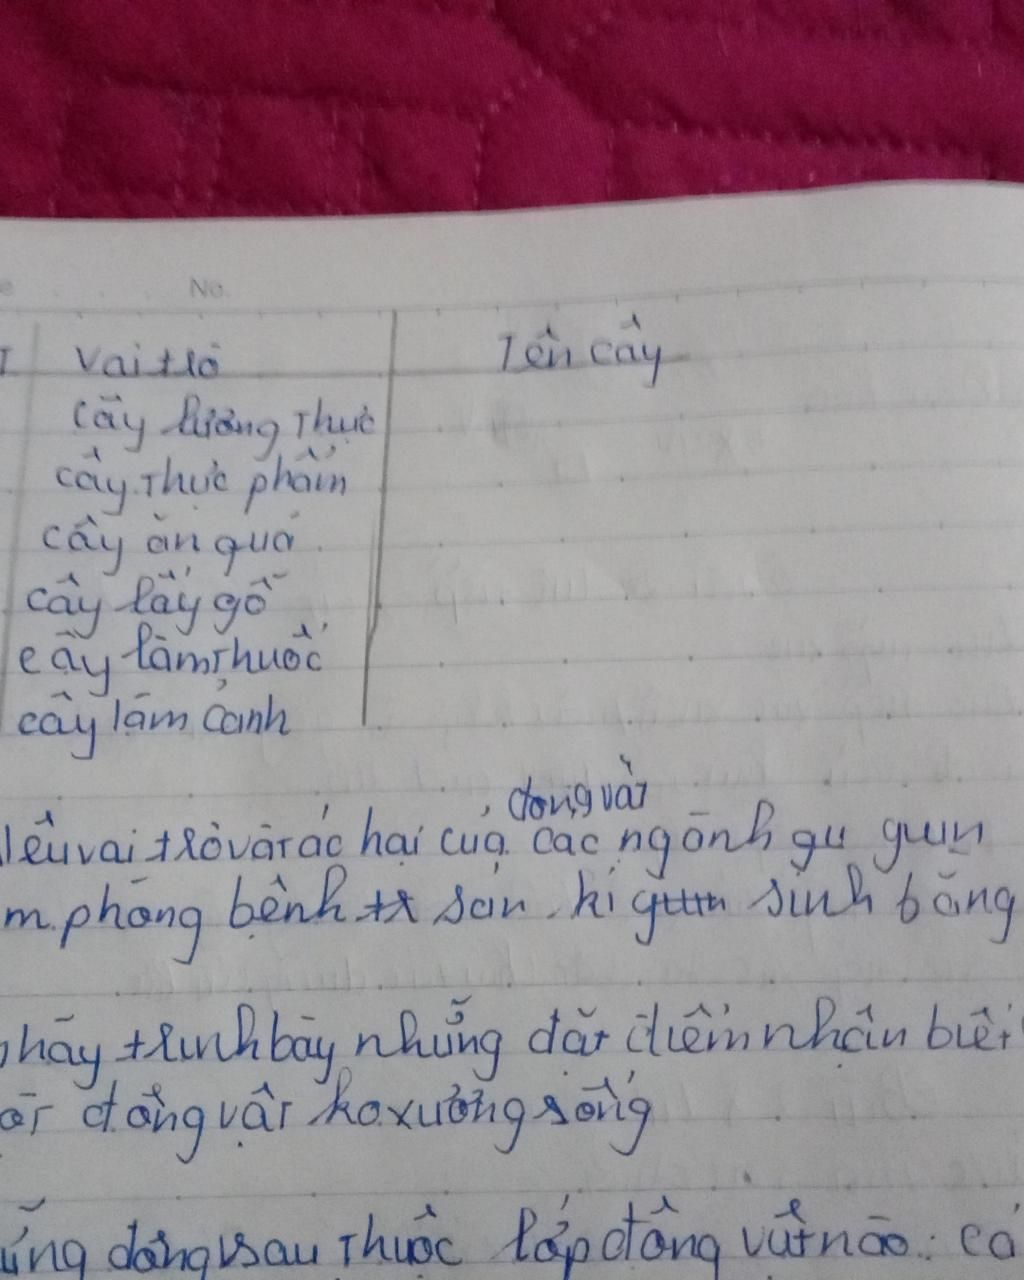 No.
Vai trò Tên cây
cây lương thực
cây thực phẩm
cây ăn quả
cây lấy gỗ
cây làm thuốc
cây làm cảnh
động vật
Nêu vai trò và tác hại của các ngành
m. phòng bệnh sán kí sinh bằng
hãy trình bày những đặt điểm nhận biết
động vật ko xương sống
động sau thuộc lớp động vật nào: cá